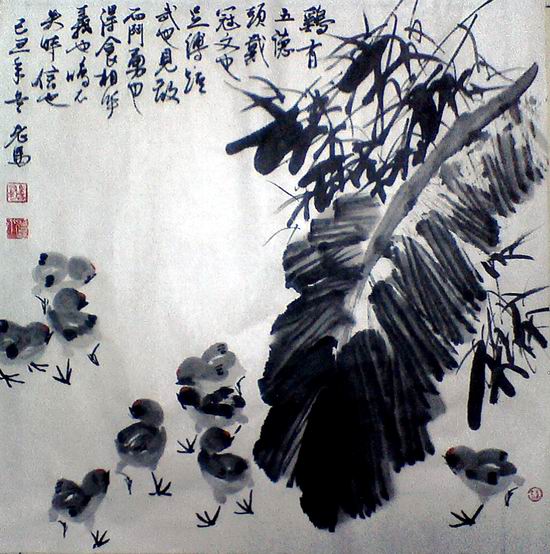 鷄有
五德
頭戴
冠文也
足傅距
武也見敵
而鬥勇也
得食相呼
義也鳴不
失時信也
己丑年 老馬